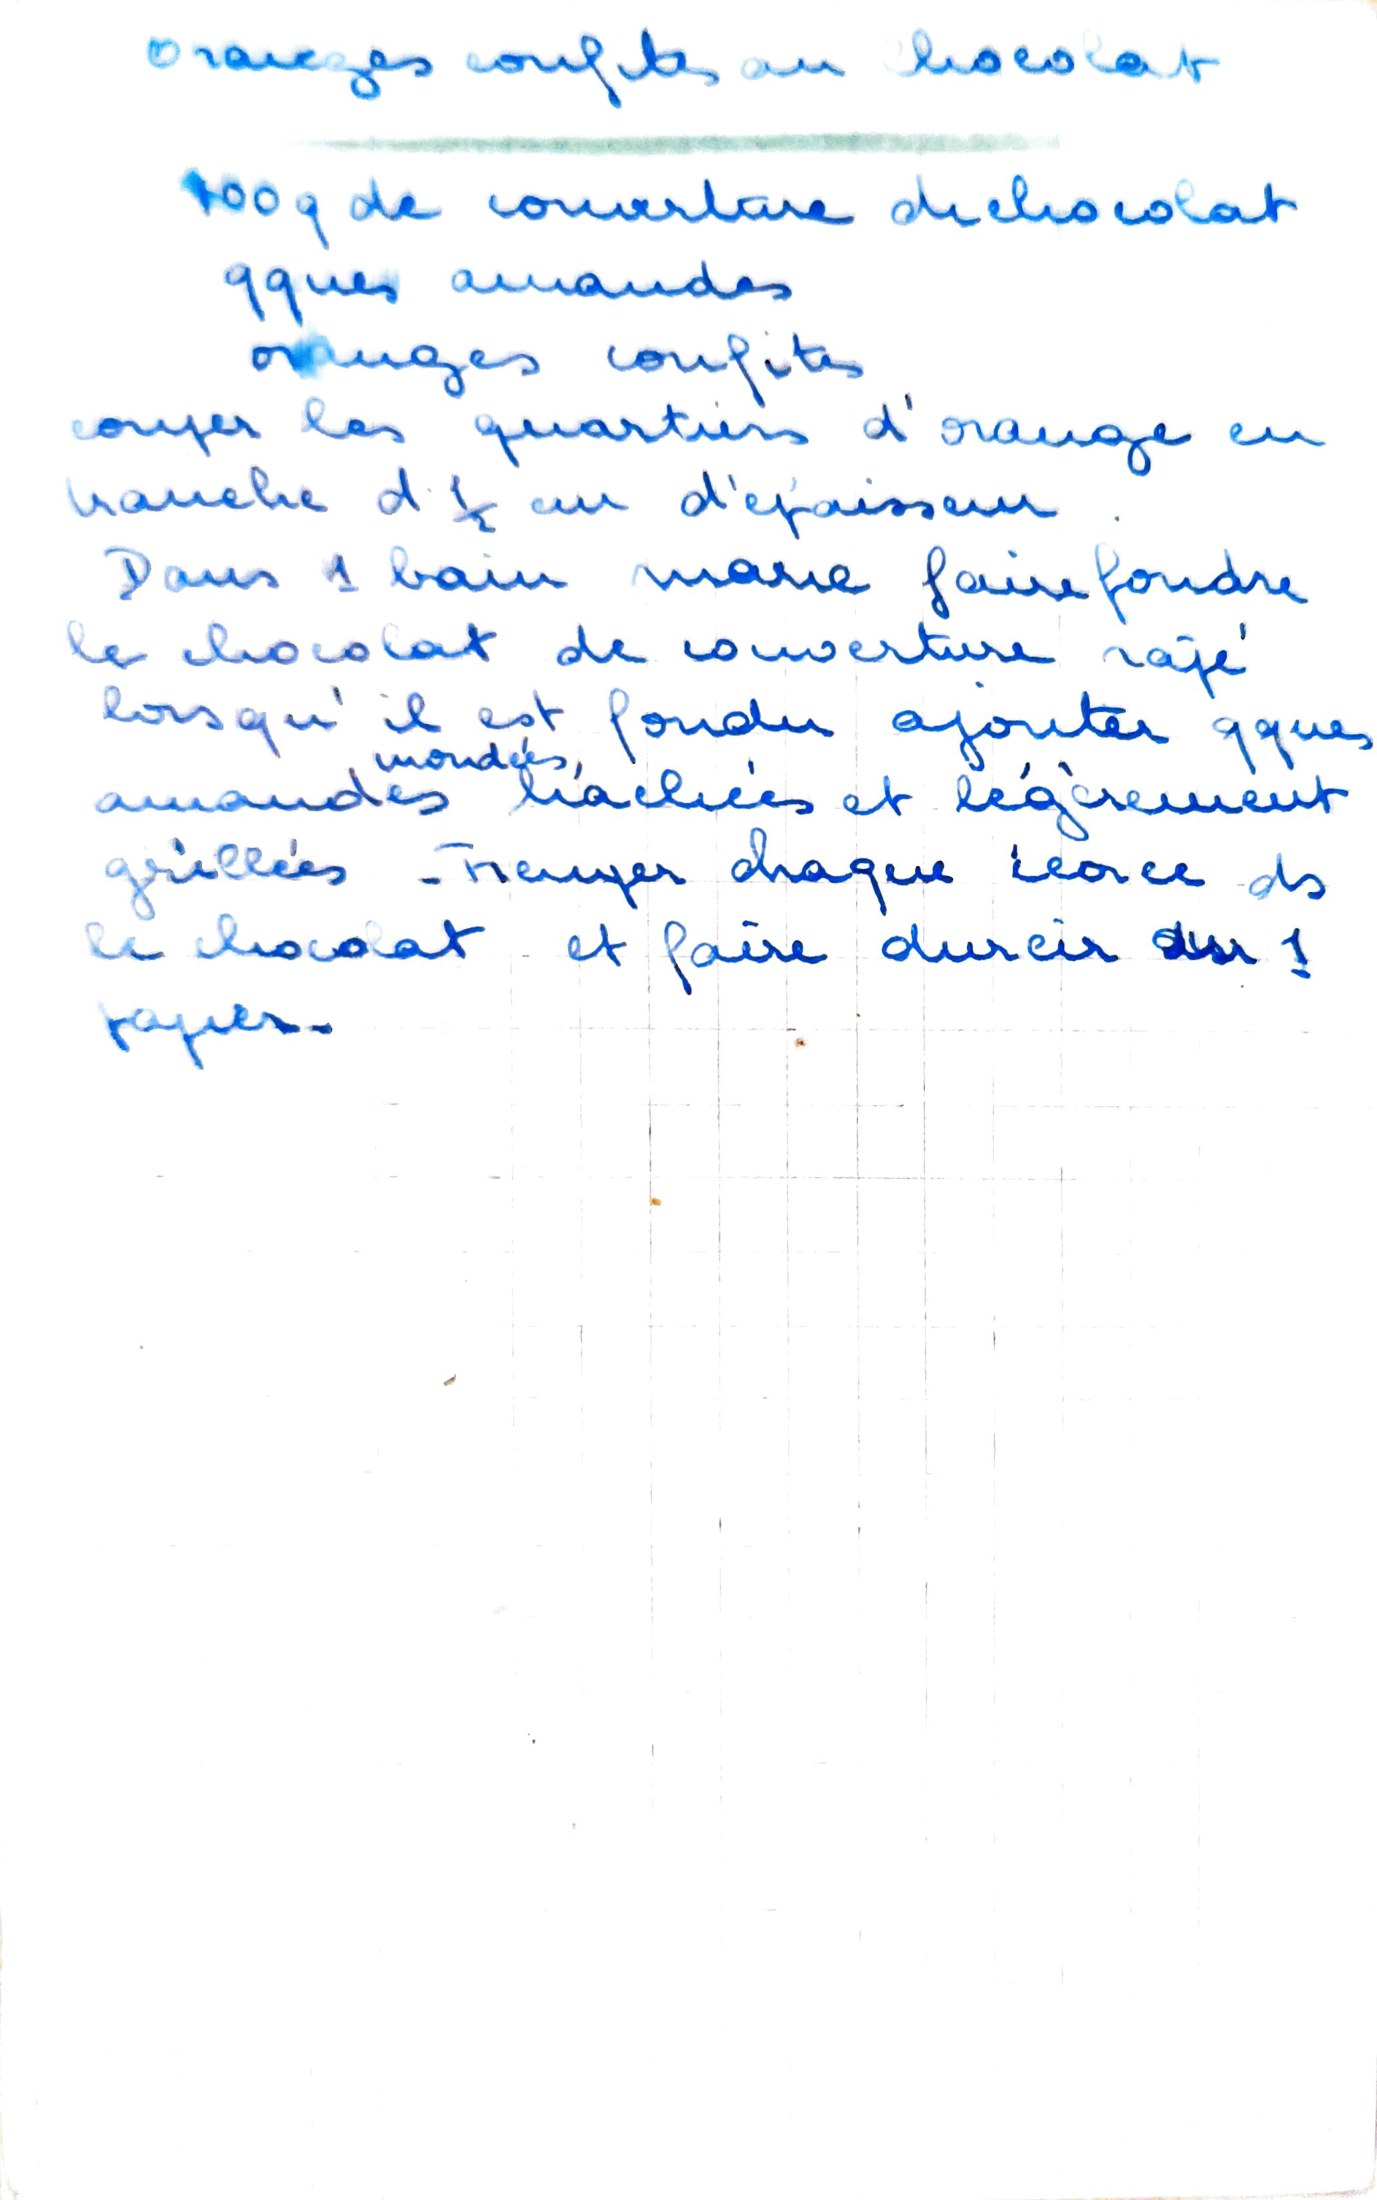 Oranges confites au chocolat
100 g de couverture de chocolat
qques amandes
oranges confites
couper les quartiers d'orange en
tranche d 1/2 cm d'épaisseur.
Dans 1 bain marie faire fondre
le chocolat de couverture râpé
lorsqu'il est fondu ajouter qques
mondées
amandes hachées et légèrement
grillées - Tremper chaque écorce ds
le chocolat et faire durcir sur 1
papier -